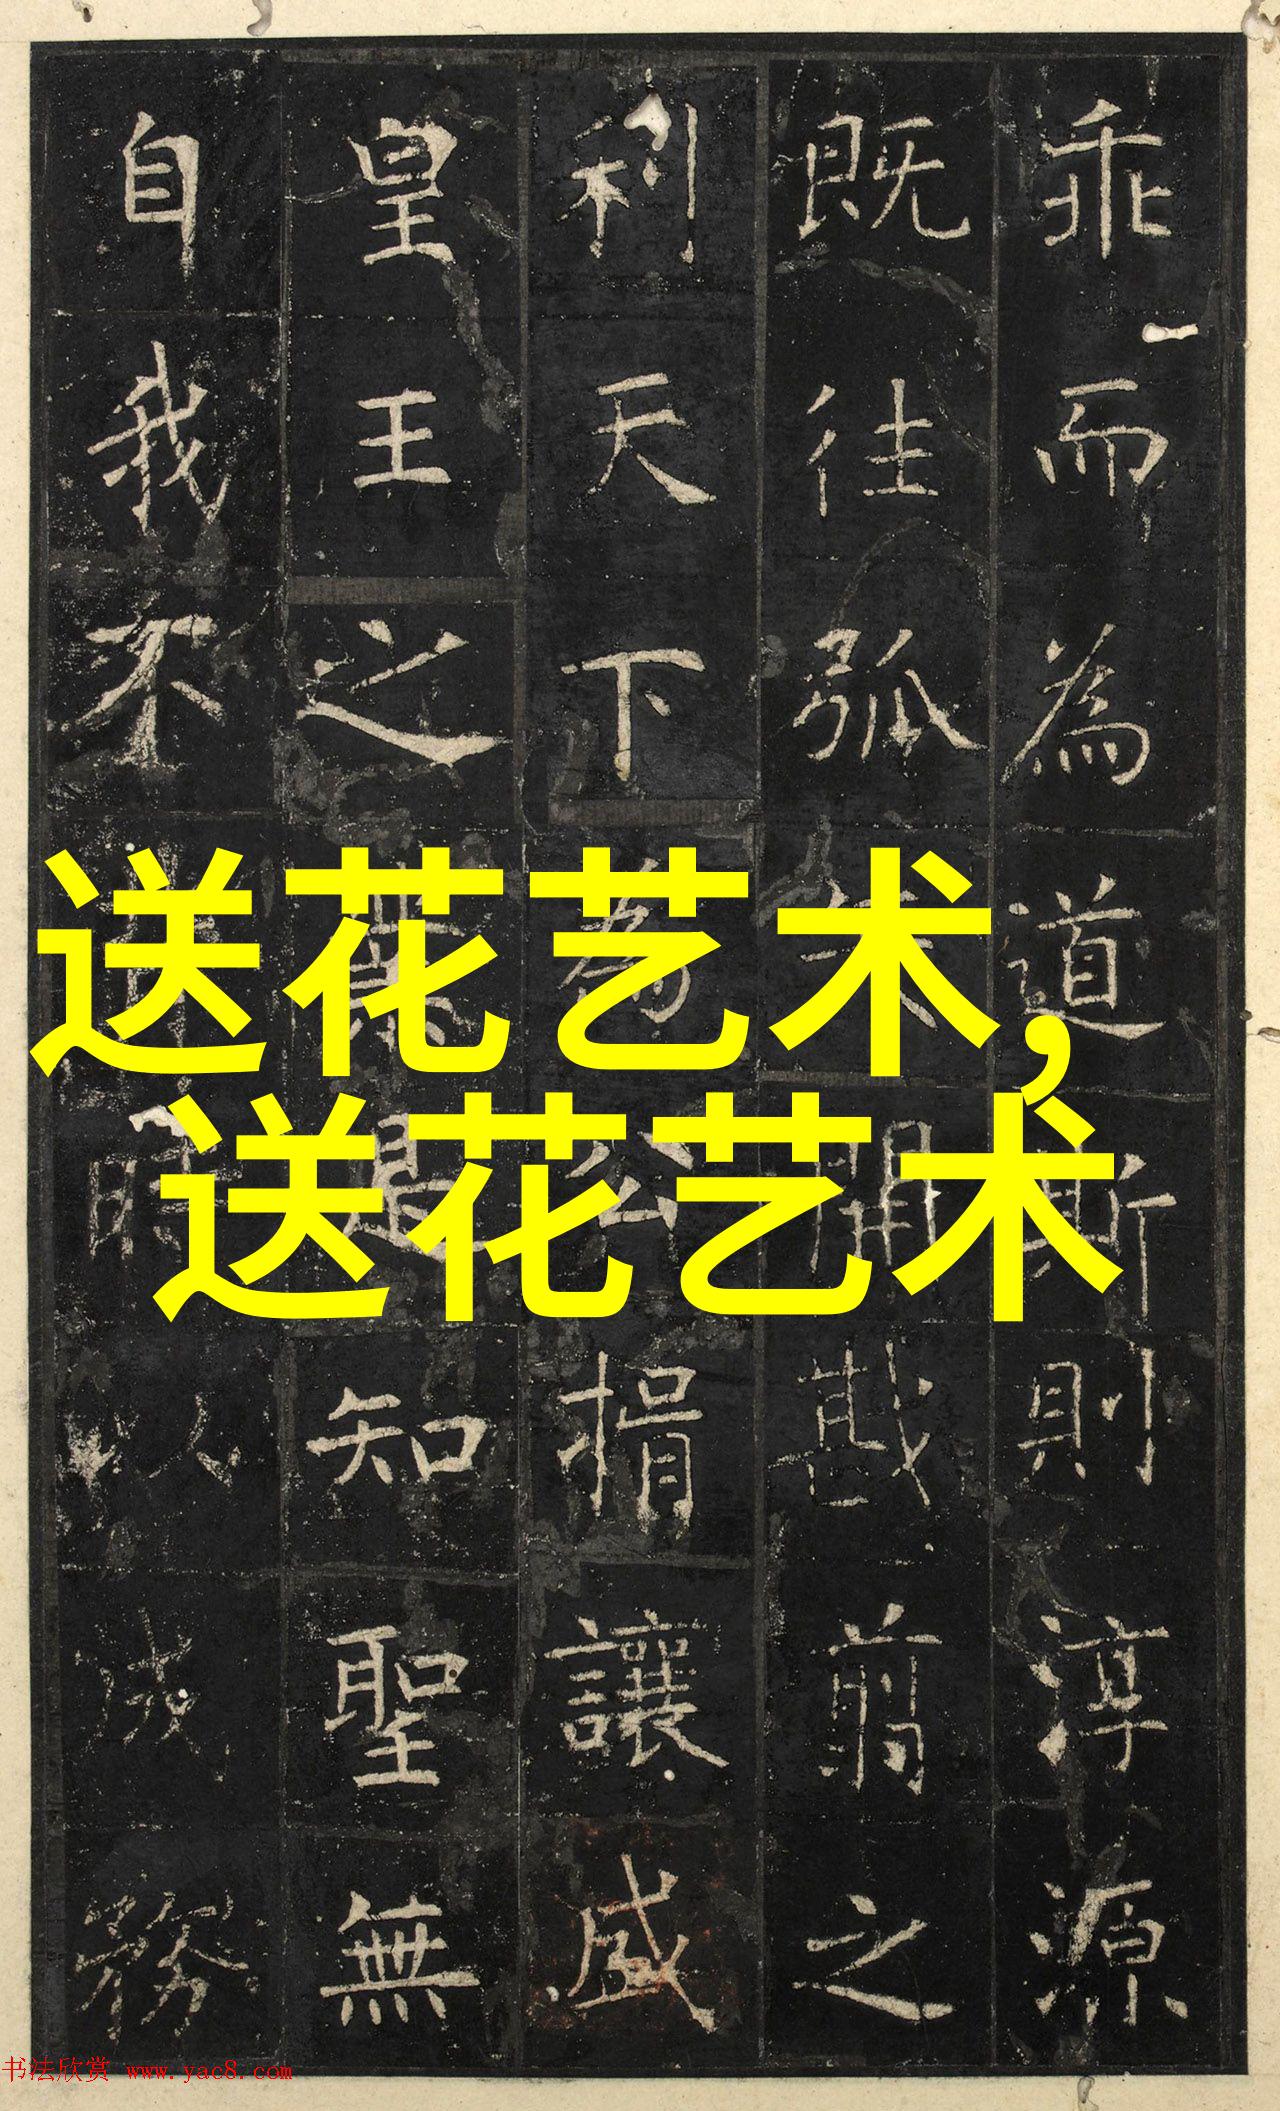 乖而為道斯則淳源
既往弧矢開戡翦之
利天下為公捐讓咸
皇王之無是知聖無
自我不時以成務
送花艺术,
送花艺术
书法欣赏 www.yac8.com